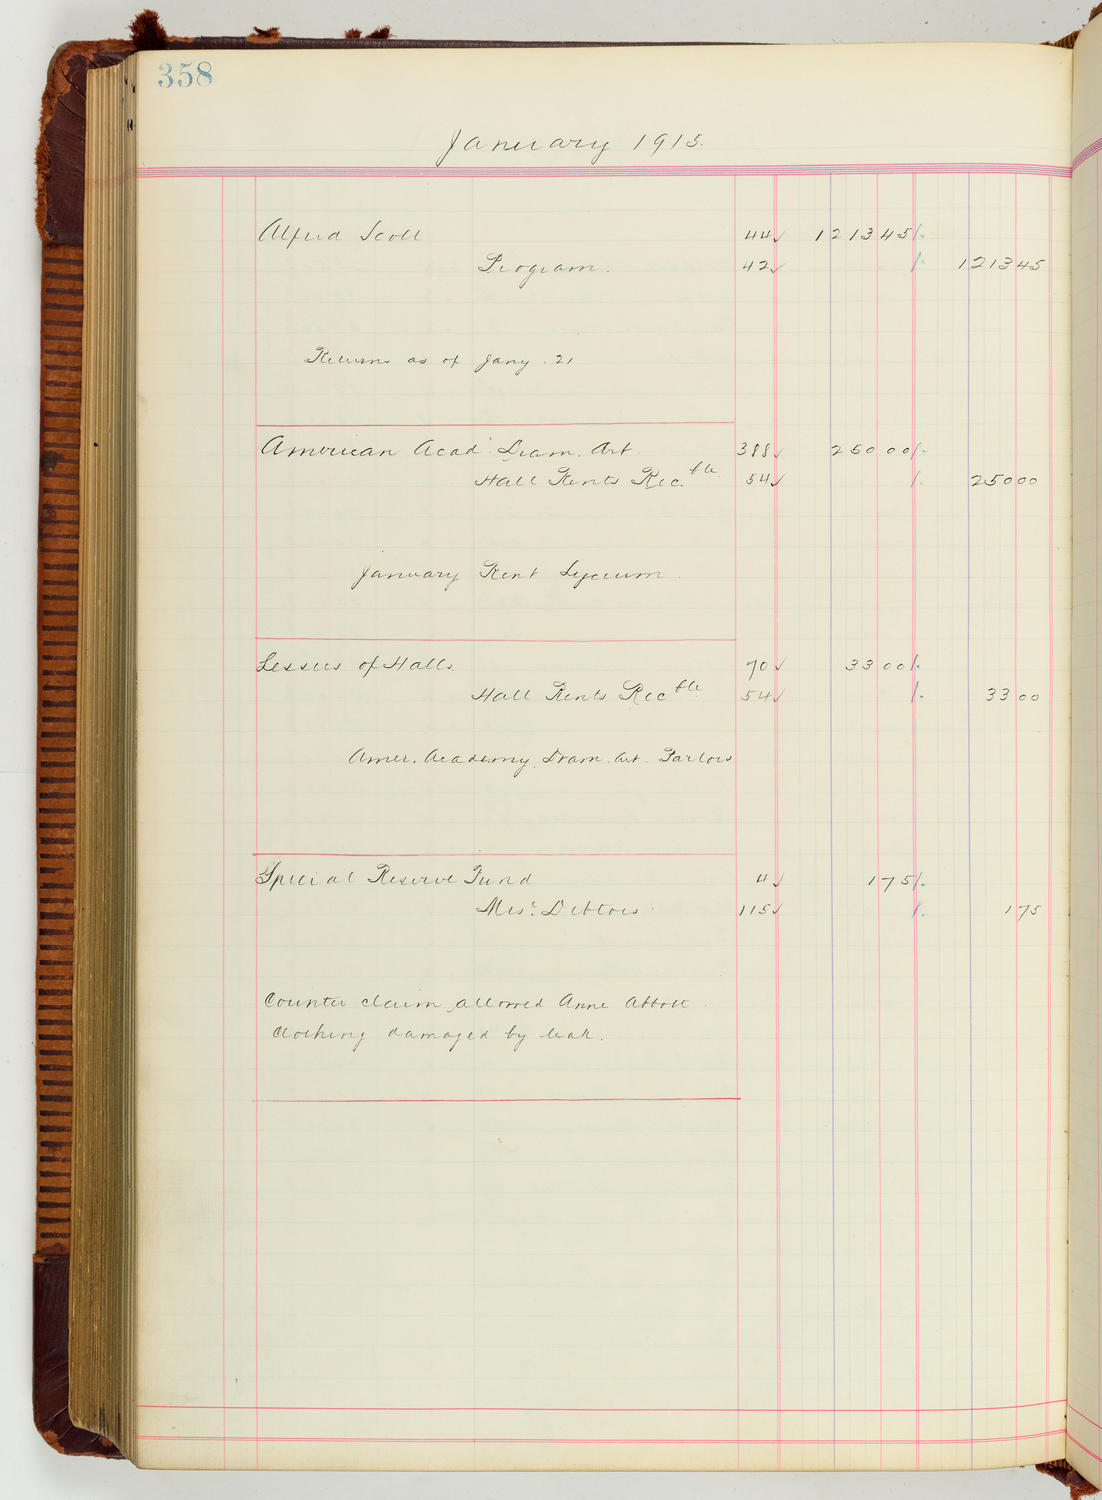 358
January 1915.
Alfred Scott 44✓ 1213 45/.
Program. 42✓ /. 1213 45
Returns as of Jany. 21
American Acad. Dram. Art. 388✓ 250 00/.
Hall Rents Rec.ble 54✓ /. 250 00
January Rent Lyceum.
Lessees of Halls 70✓ 33 00/.
Hall Rents Recble 54✓ /. 33 00
Amer. Academy. Dram. Art. Parlors
Special Reserve Fund 4✓ 1 75/.
Misc. Debtors 115✓ /. 1 75
Counter claim allowed Anne Abbott
Clothing damaged by leak.